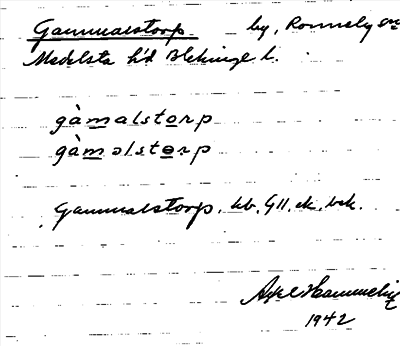 Gammalstorp by, Ronneby sn
Medelsta h'd Blekinge l.
gàmalstorp
gàməlstɵrp
Gammalstorp, kb, GII, ek, bek.
Axel Hammelin
1942